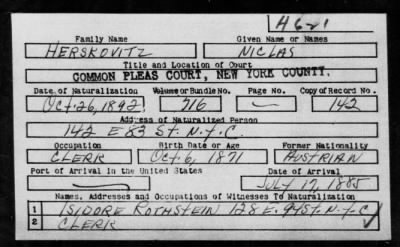 H621
Family Name Given Name or Names
HERSKOVITZ NICLAS
Title and Location of Court
COMMON PLEAS COURT, NEW YORK COUNTY.
Date of Naturalization Volume or Bundle No. Page No. Copy of Record No.
Oct. 26, 1892. 716 — 142
Address of Naturalized Person
142 E 83 St. N.Y.C.
Occupation Birth Date or Age Former Nationality
CLERK Oct. 6, 1871 AUSTRIAN
Port of Arrival in the United States Date of Arrival
— JULY 17, 1885
Names, Addresses and Occupations of Witnesses To Naturalization
1 ISIDORE ROTHSTEIN 128 E. 94 St. N.Y.C
2 CLERK